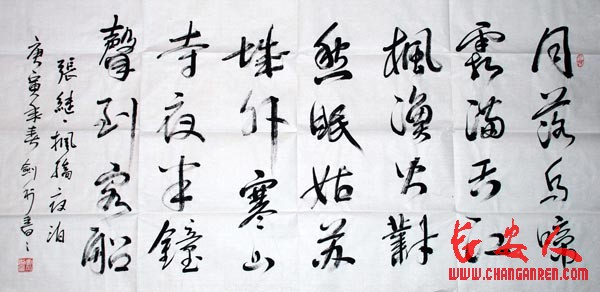 月落乌啼
霜满天江
楓漁火對
愁眠姑苏
城外寒山
寺夜半鐘
聲到客船
張繼、楓橋夜泊
庚寅年春 劍 書
长安人
WWW.CHANGANREN.COM